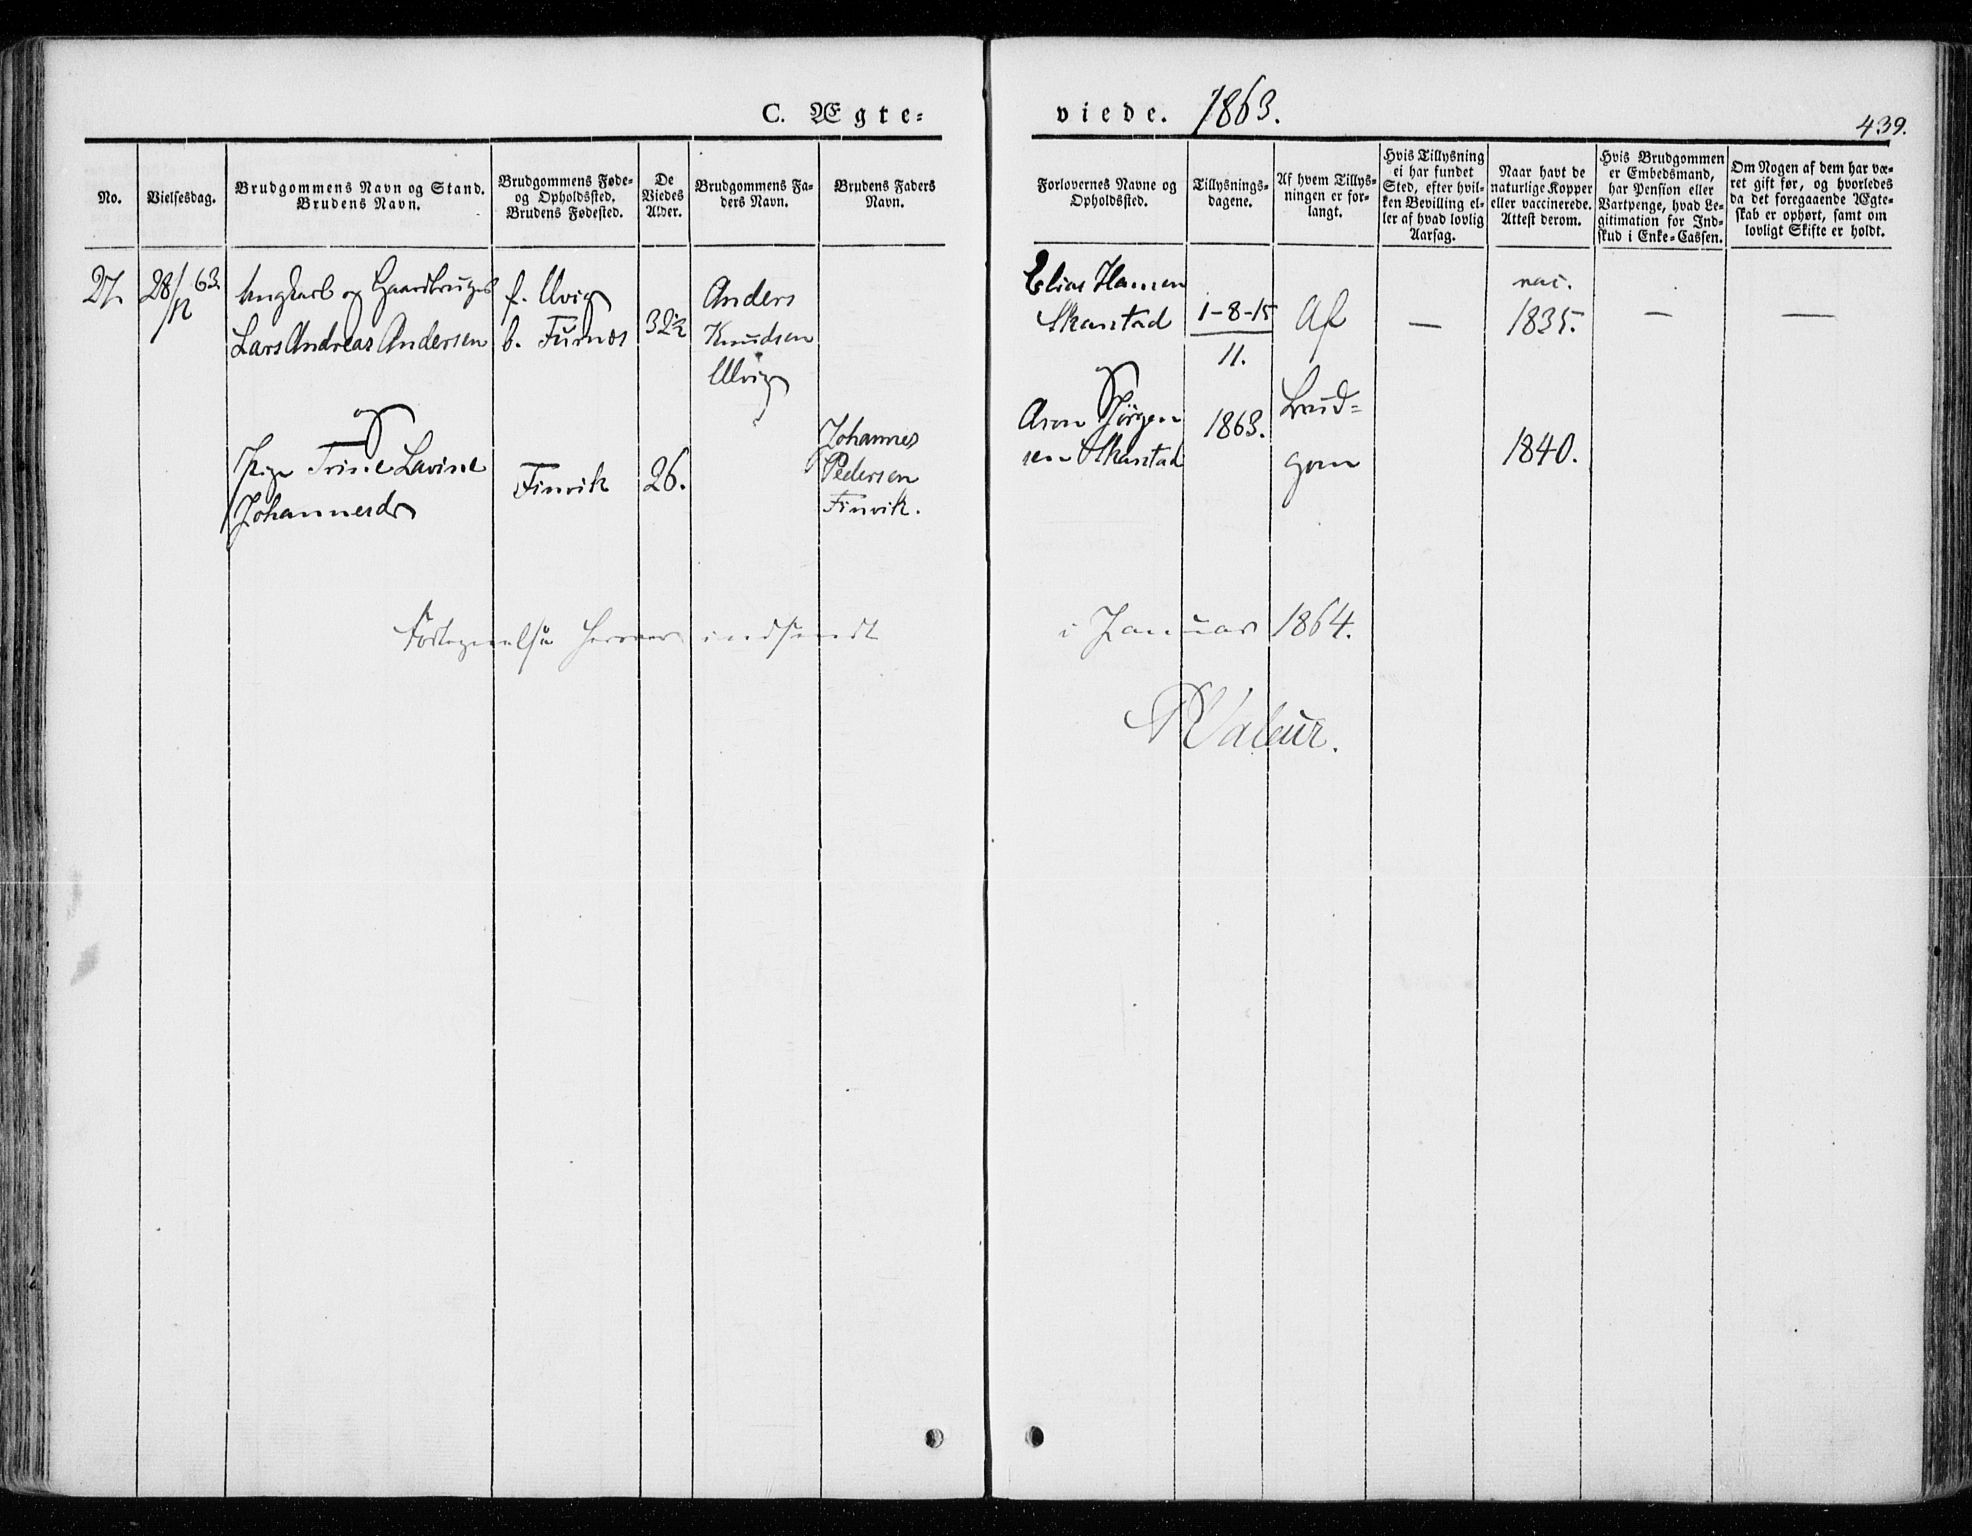 C. Ægte=
viede. 1863.
439.
No.
Vielsesdag.
Brudgommens Navn og Stand.
Brudens Navn.
Brudgommens Føde-
og Opholdssted.
Brudens Fødested.
De
Viedes
Alder.
Brudgommens Fa-
ders Navn.
Brudens Faders
Navn.
Forlovernes Navne og
Opholdssted.
Tillysnings-
dagene.
Af hvem Tillys-
ningen er for-
langt.
Hvis Tillysning
ei har fundet
Sted, efter hvil-
ken Bevilling el-
ler af hvad lovlig
Aarsag.
Naar havt de
naturlige Kopper
eller vaccinerede.
Attest derom.
Hvis Brudgommen
er Embedsmand,
har Pension eller
Vartpenge, hvad Le-
gitimation for Ind-
skud i Enke=Cassen.
Om Nogen af dem har væ-
ret gift før, og hvorledes
da det foregaaende Ægte-
skab er ophørt, samt om
lovligt Skifte er holdt.
27.
28/12 63.
Ungkarl og Gaardbruger
Lars Andreas Andersen
og
Pige Trine Lavine
Johannesdr
f. Ulvig
b. Furnæs
Finvik
32½
26.
Anders
Knudsen
Ulvig
Johannes
Pedersen
Finvik.
Elias Hansen
Skarstad
og
Aron Jørgen
sen Skarstad
1-8-15
11.
1863.
Af
Brud=
gom
—
vac.
1835.
1840.
—
—
Fortegnelse herover indsendt
i Januar 1864.
Valeur.